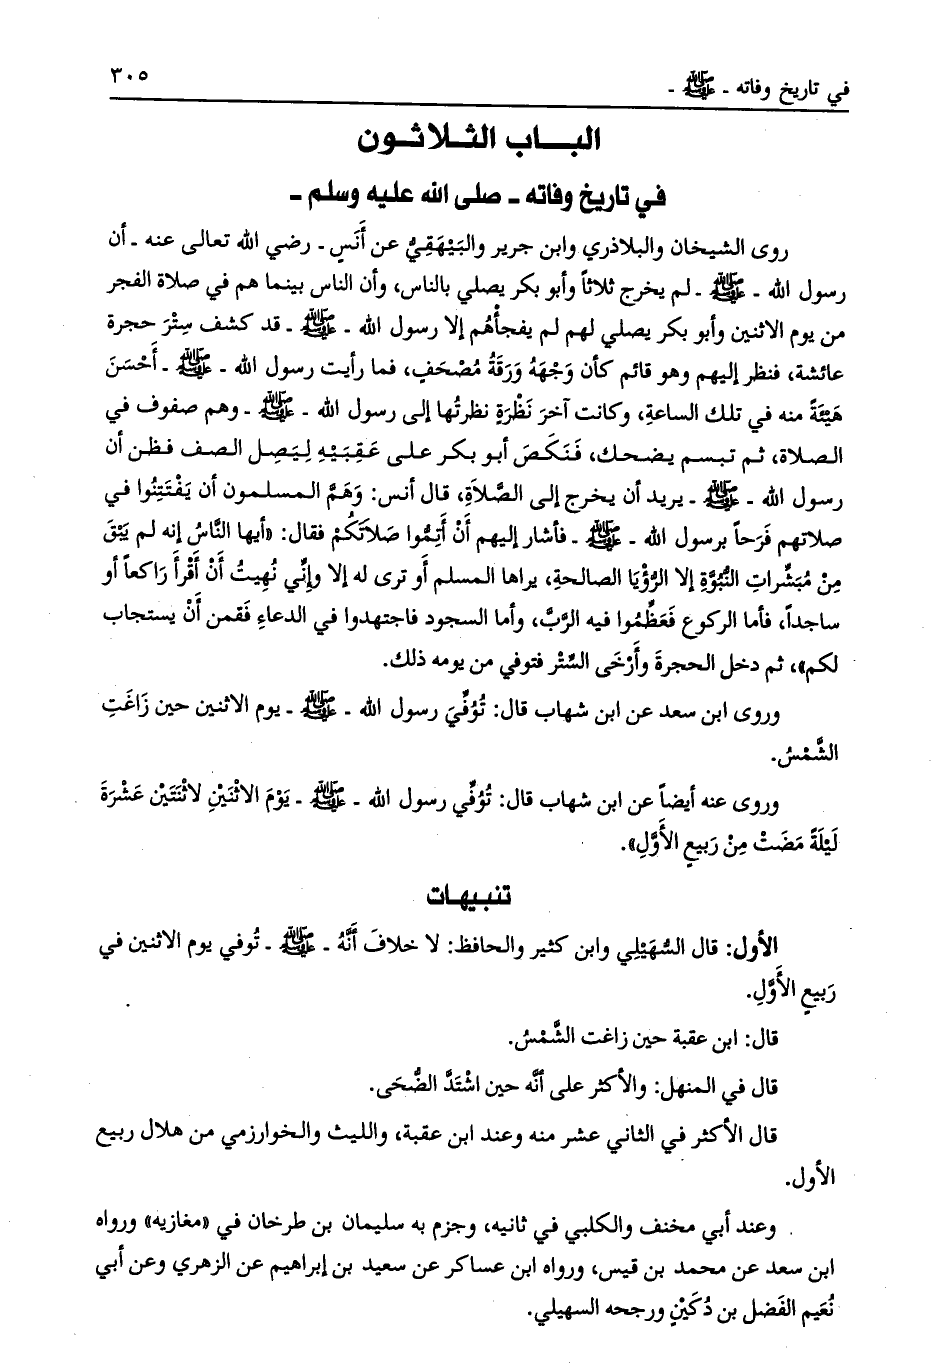 في تاريخ وفاته ـ ﷺ ـ ٣٠٥
البـــاب الثـلاثـون
في تاريخ وفاته ـ صلى الله عليه وسلم ـ
روى الشيخان والبلاذري وابن جرير والبَيْهَقِيُّ عن أَنَسٍ ـ رضي الله تعالى عنه ـ أن
رسول الله ـ ﷺ ـ لم يخرج ثلاثاً وأبو بكر يصلي بالناس، وأن الناس بينما هم في صلاة الفجر
من يوم الاثنين وأبو بكر يصلي لهم لم يفجأْهُم إلا رسول الله ـ ﷺ ـ قد كشف سِتْرَ حجرة
عائشة، فنظر إليهم وهو قائم كأن وَجْهَهُ وَرَقَةُ مُصْحَفٍ، فما رأيت رسول الله ـ ﷺ ـ أَحْسَنَ
هَيْئَةً منه في تلك الساعةِ، وكانت آخرَ نَظْرَةٍ نظرتُها إلى رسول الله ـ ﷺ ـ وهم صفوف في
الصلاة، ثم تبسم يضحك، فَنَكَصَ أبو بكر على عَقِبَيْهِ لِيَصِل الصف فظن أن
رسول الله ـ ﷺ ـ يريد أن يخرج إلى الصَّلاَةِ، قال أنس: وَهَمَّ المسلمون أن يَفْتَتِنُوا في
صلاتهم فَرَحاً برسول الله ـ ﷺ ـ فأشار إليهم أَنْ أَتِمُّوا صَلاَتَكُمْ فقال: «أيها النَّاسُ إنه لم يَبْقَ
مِنْ مُبَشِّراتِ النُّبُوَّةِ إلا الرُّؤْيَا الصالحةِ، يراها المسلم أو ترى له إلا وإِنِّي نُهِيتُ أَنْ أَقْرأَ رَاكعاً أو
ساجداً، فأما الركوع فَعَظِّمُوا فيه الرَّبَّ، وأما السجود فاجتهدوا في الدعاءِ فَقمن أَنْ يستجاب
لكم»، ثم دخل الحجرة وأَرْخَى السِّتْر فتوفي من يومه ذلك.
وروى ابن سعد عن ابن شهاب قال: تُوُفِّيَ رسول الله ـ ﷺ ـ يوم الاثنين حين زَاغَتِ
الشَّمْسُ.
وروى عنه أيضاً عن ابن شهاب قال: تُوُفِّي رسول الله ـ ﷺ ـ يَوْمَ الاثْنَيْنِ لاثْنَتَيْن عَشْرَةَ
لَيْلَةً مَضَتْ مِنْ رَبيعِ الأَوَّلِ».
تنبيهـات
الأول: قال السُّهَيْلِي وابن كثير والحافظ: لا خلافَ أَنَّهُ ـ ﷺ ـ تُوفي يوم الاثنين في
رَبيعِ الأَوَّلِ.
قال: ابن عقبة حين زاغت الشَّمْسُ.
قال في المنهل: والأكثر على أنَّه حين اشْتَدَّ الضُّحَى.
قال الأكثر في الثاني عشر منه وعند ابن عقبة، والليث والخوارزمي من هلال ربيع
الأول.
وعند أبي مخنف والكلبي في ثانيه، وجزم به سليمان بن طرخان في «مغازيه» ورواه
ابن سعد عن محمد بن قيس، ورواه ابن عساكر عن سعيد بن إبراهيم عن الزهري وعن أبي
نُعَيم الفَضل بن دُكَيْنٍ ورجحه السهيلي.